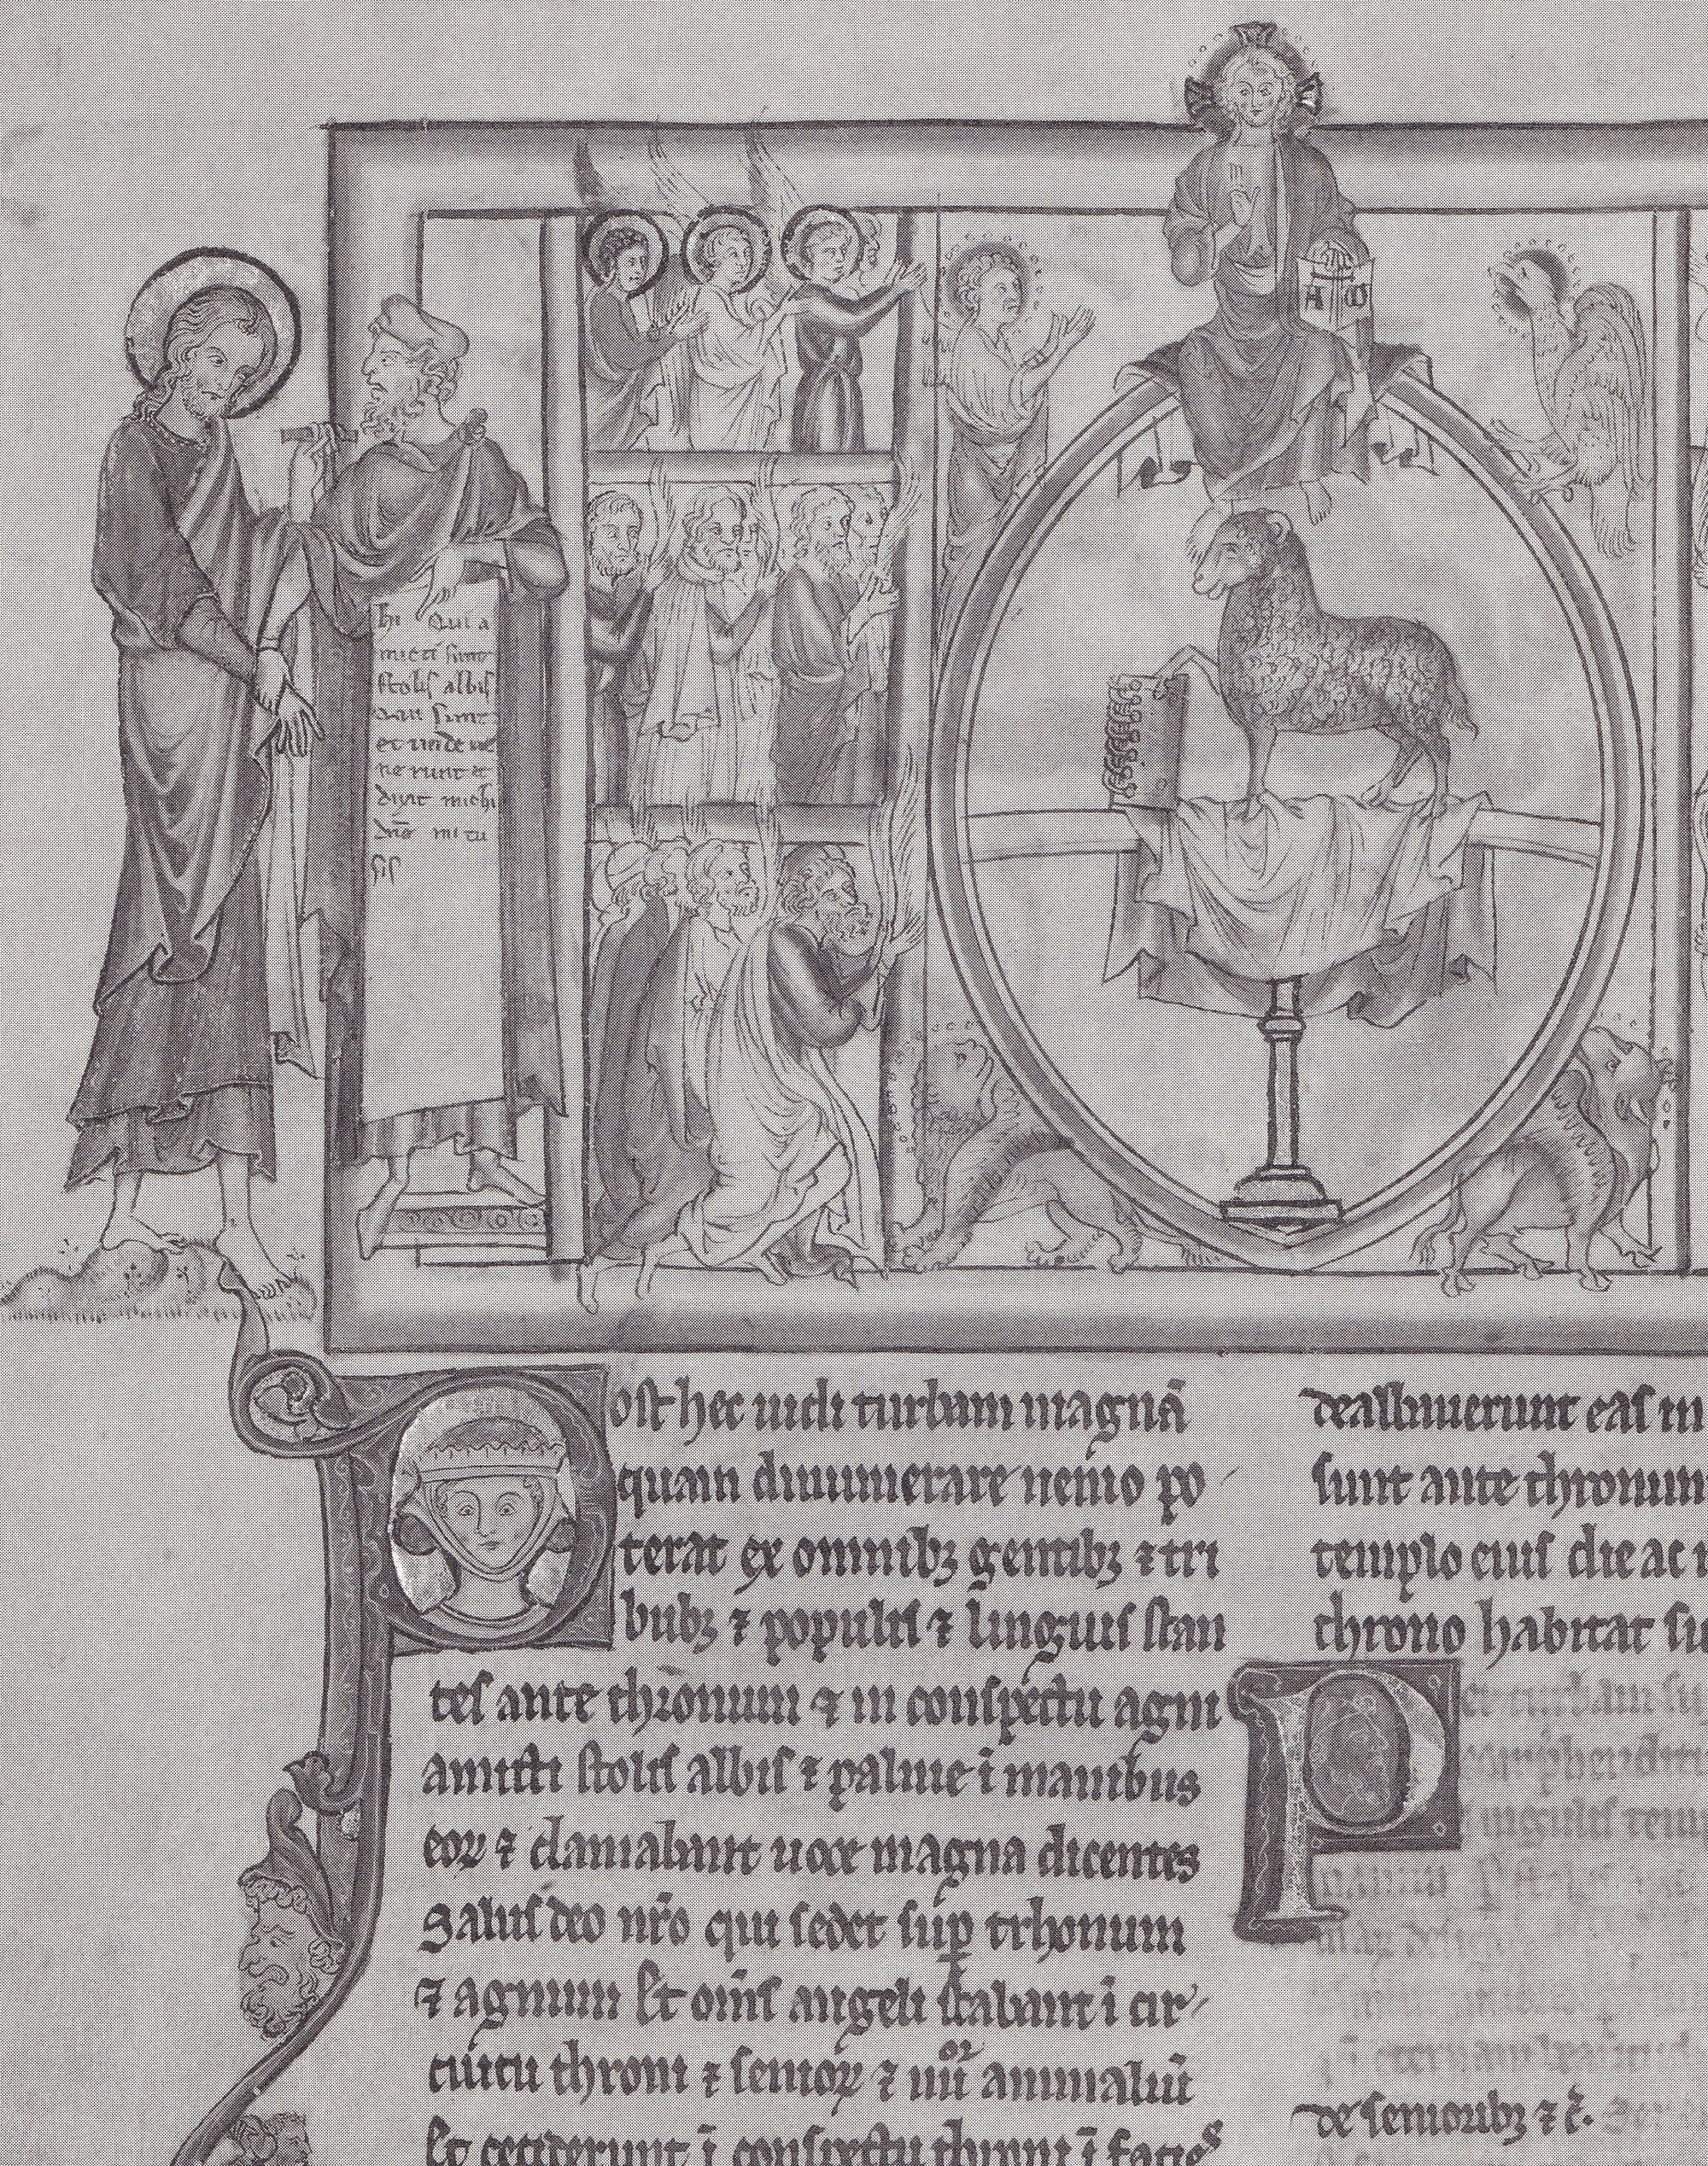 A ω
hi Qui a
micti sunt
stolis albis
qui sunt
et unde ue
nerunt et
dixit michi
dne mi tu
sis
Post hec uidi turbam magnā
quam dinumerare nemo po
terat ex omnibꝫ gentibꝫ ⁊ tri
bubꝫ ⁊ populis ⁊ linguis stan
tes ante thronum ⁊ in conspectu agni
amicti stolis albis ⁊ palme ī manibus
eoꝝ ⁊ clamabant uoce magna dicentes
Salus deo nr̄o qui sedet sup̄ trhonum
⁊ agnum Et om̄s angeli stabant ī cir
cuitu throni ⁊ senioꝝ ⁊ iiiiᵒʳ animaliū
Et ceciderunt ī conspectu throni ī facies
dealbauerunt eas in
sunt ante thronum
templo eius die ac
throno habitat su
P
de senioribꝫ ⁊ c̄.